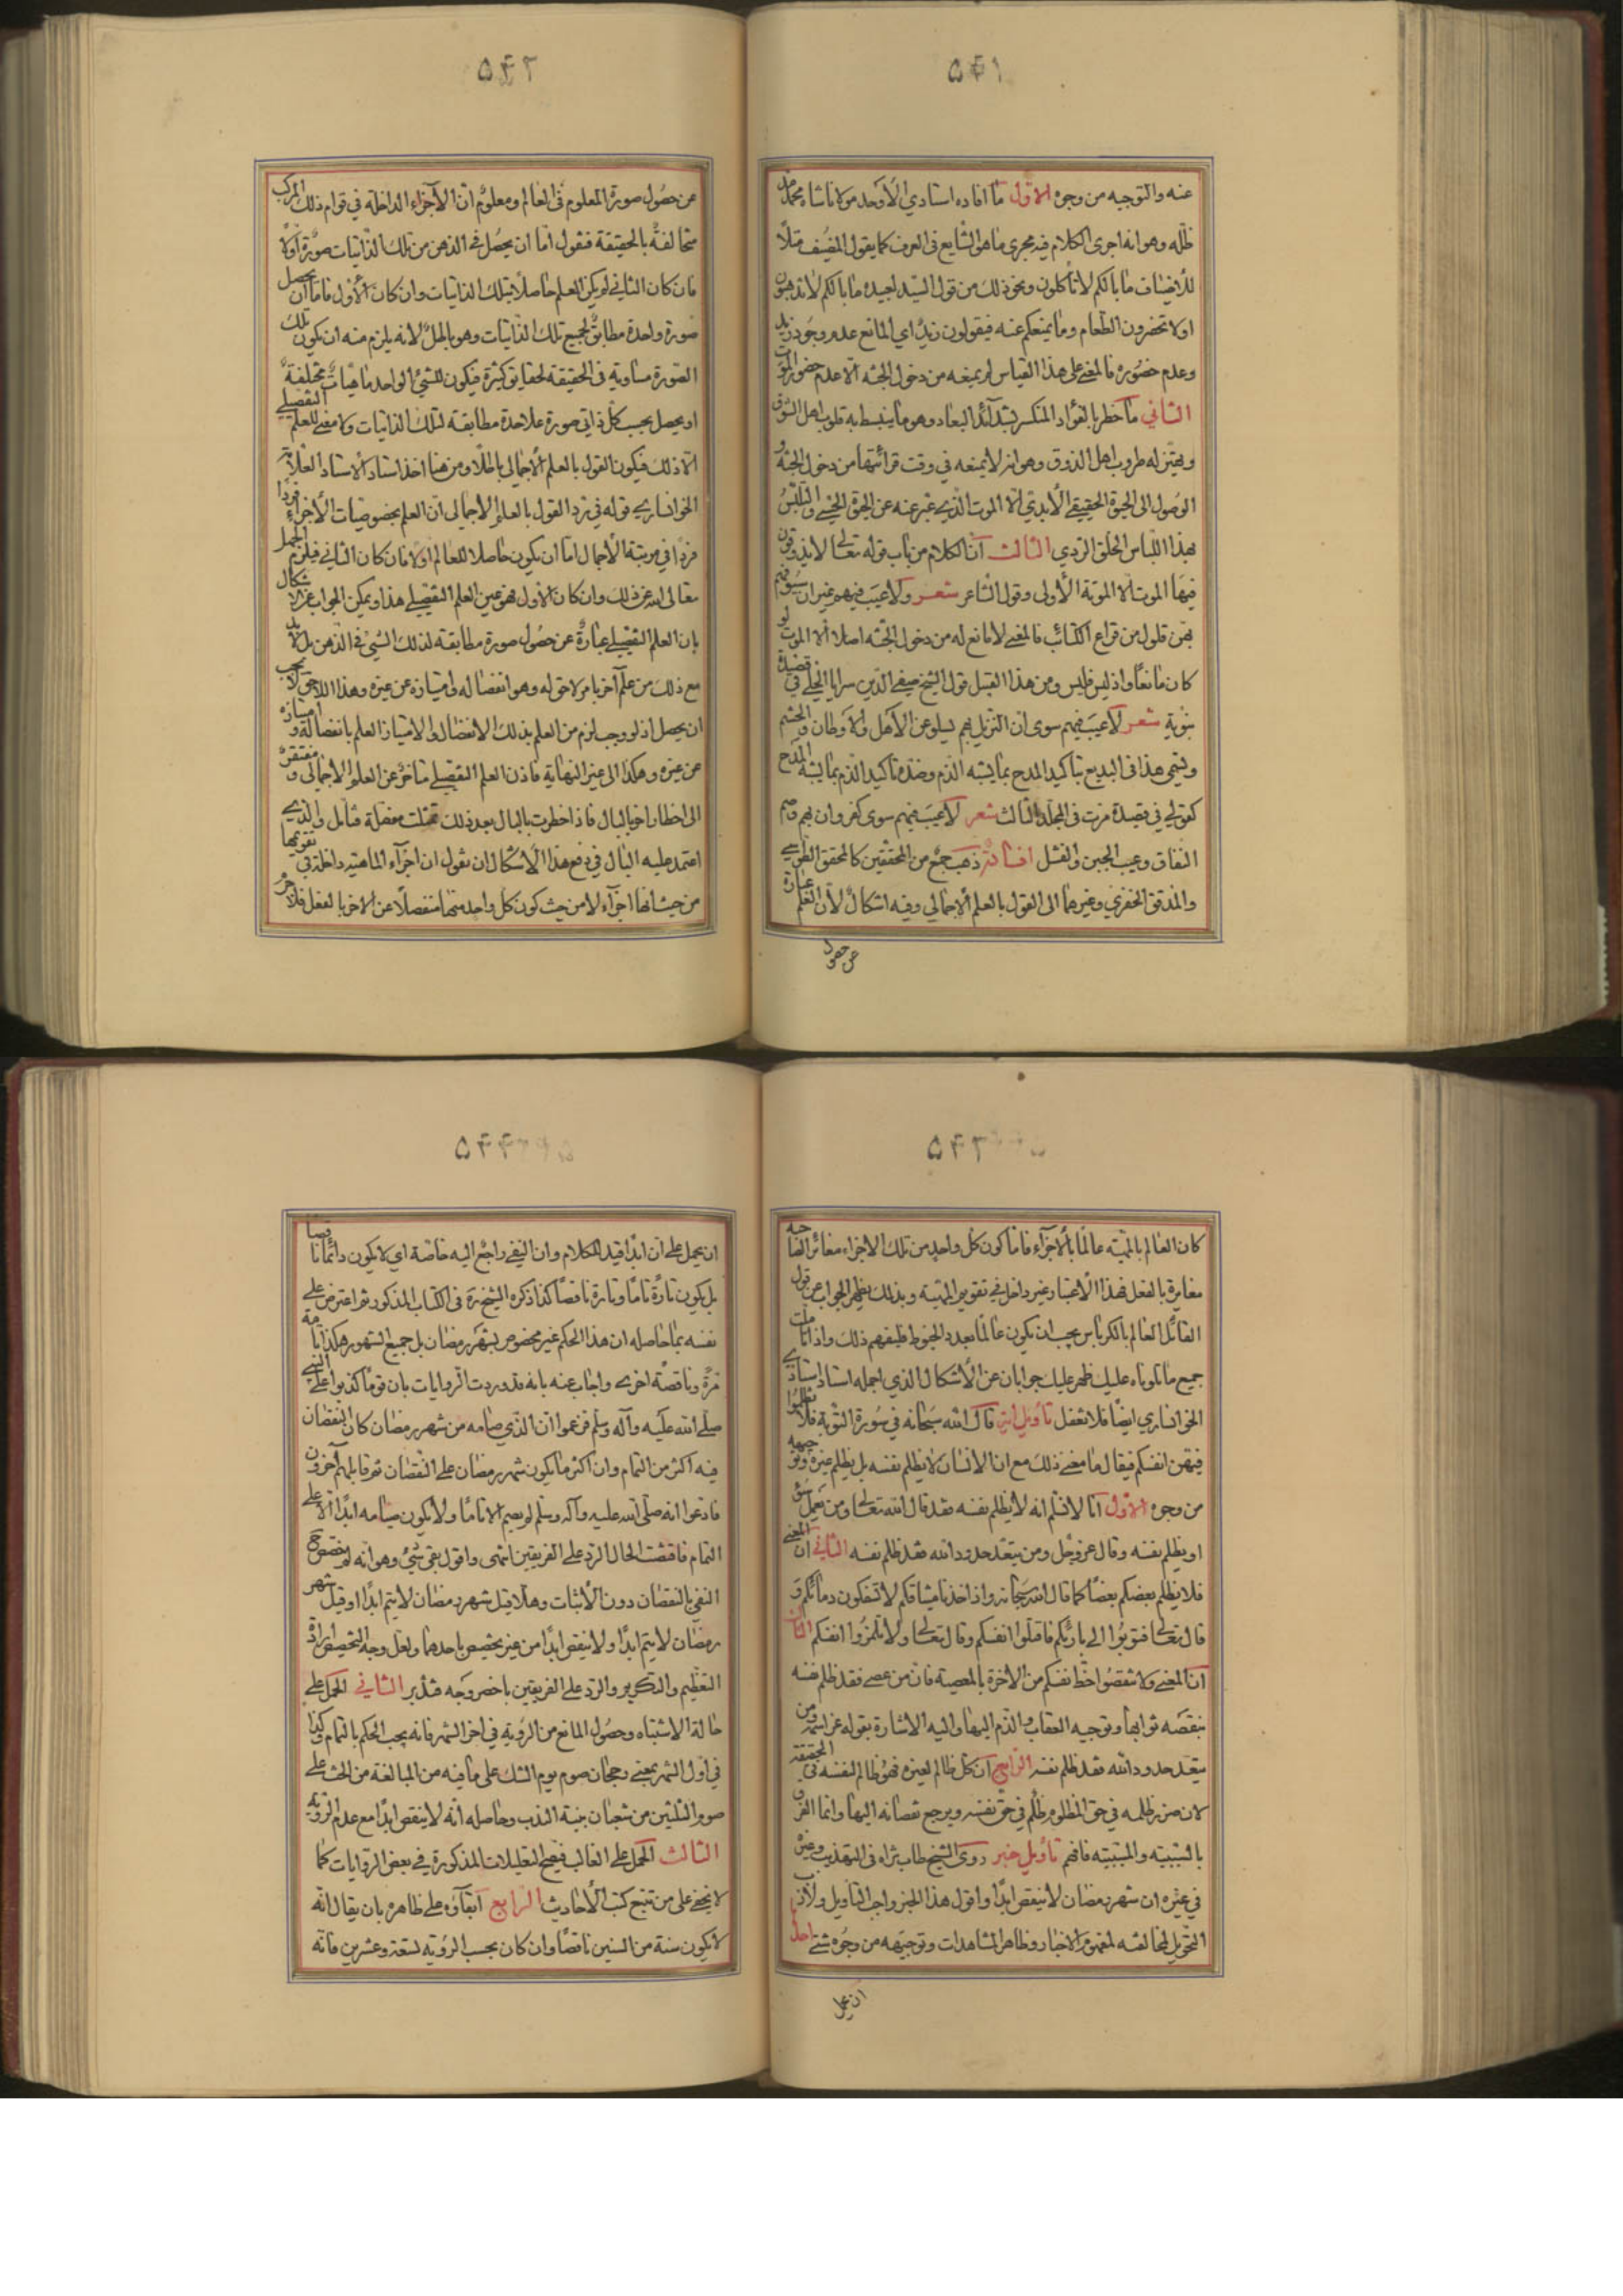 ۵۴۱
عنه والتوجيه من وجوه الاول ما افاده استادي الاوحد مولانا شاه محمد
ظله وهو انه اجرى الكلام فيه مجرى ما هو الشايع في العرف كما يقول المضيف مثلا
للاضياف ما بالكم لا تأكلون ونحو ذلك من قول السيد لعبيده ما بالكم لا تذهبون
اولا تحضرون الطعام وما يمنعكم عنه فيقولون زيد اي المانع عدم وجود زيد
وعدم حضوره فالمعنى على هذا القياس لم يمنعه من دخول الجنة الا عدم حضور الموت
الثاني ما خطر بالفؤاد المنكسر لشدائد البعاد وهو ما ينبسط به قلوب اهل الشوق
ويهتز له طروب اهل الذوق وهو انه لا يمنعه في وقت قرائتها من دخول الجنة و
الوصول الى الحيوة الحقيقي الابدي الا الموت الذي عبر عنه عن الحيوة الحسي والتلبس
بهذا اللباس الخلق الردي الثالث ان الكلام من باب قوله تعالى لا يذوقون
فيها الموت الا الموتة الأولى وقول الشاعر شعر ولا عيب فيهم غير ان سيوفهم
بهن فلول من قراع الكتائب فالمعنى لا مانع له من دخول الجنة اصلا الا الموت لو
كان مانعا واذ ليس فليس ومن هذا القبيل قول الشيخ صفي الدين سرايا الحلي في قصيدة
نبوية شعر لا عيب فيهم سوى ان النزيل بهم يسلو عن الاهل والاوطان والحشم
ويسمى هذا في البديع تأكيد المدح بما يشبه الذم وضده تأكيد الذم بما يشبه المدح
كقولي في قصيدة مرت في المجلد الثالث شعر لا عيب فيهم سوى كفر وان بهم وصم
النفاق وعيب الجبن والفشل افادة ذهب جمع من المحققين كالمحقق الطوسي
والمدقق الخفري وغيرهما الى القول بالعلم الاجمالي وفيه اشكال لأن العلم عبارة
عن حصول
۵۴۲
عن حصول صورة المعلوم في العالم ومعلوم ان الأجزاء الداخلة في قوام ذلك المركب
متخالفة بالحقيقة فنقول اما ان يحصل في الذهن من تلك الذاتيات صورة اولا
فان كان الثاني لم يكن العلم حاصلا بتلك الذاتيات وان كان الأول فاما ان يحصل
صورة واحدة مطابق لجميع تلك الذاتيات وهو باطل لأنه يلزم منه ان يكون تلك
الصورة مساوية في الحقيقة لحقايق كثيرة فيكون للشيء الواحد ماهيات مختلفة
او يحصل بحسب كل ذاتي صورة علاحدة مطابقة لتلك الذاتيات ولا معنى للعلم التفصيلي
الا ذلك فيكون القول بالعلم الأجمالي باطلا ومن هنا اخذ استاد الاستاد العلامة
الخوانساري قوله في رد القول بالعلم الاجمالي ان العلم بخصوصيات الأجزاء فردا
فردا في مرتبة الأجمال اما ان يكون حاصلا للعالم اولا فان كان الثاني فيلزم الجهل
تعالى الله عن ذلك وان كان الاول فهو عين العلم التفصيلي هذا ويمكن الجواب عن الاشكال
بان العلم التفصيلي عبارة عن حصول صورة مطابقة لذلك الشيء في الذهن بل لا بد
مع ذلك من علم آخر بامر لاحق له وهو انفصاله وامتيازه عن غيره وهذا اللاحق لا يجب
ان يحصل اذ لو وجب لزم من العلم بذلك الانفصال والامتياز العلم بانفصاله وامتيازه
عن غيره وهكذا الى غير النهاية فاذن العلم التفصيلي متأخر عن العلم الاجمالي ومفتقر
الى اخطار اخر بالبال فاذا خطرت بالبال بعد ذلك تمثلت مفصلة فتأمل والذي
اعتمد عليه البال في دفع هذا الاشكال ان نقول ان اجزآء الماهية داخلة في تقويمها
من حيث انها اجزآء لا من حيث كون كل واحد منها منفصلا عن الاخر بالفعل فلا جرم
۵۴۳
كان العالم بالمهية عالما بالأجزآء فاما كون كل واحد من تلك الاجزاء مغائر لصاحبه
مغايرة بالفعل فهذا الاعتبار غير داخل في تقويم المهية وبذلك يظهر الجواب عن قول
القائل العالم بالكرباس يجب ان يكون عالما بعدد الخيوط فليفهم ذلك واذا تأملت
جميع ما تلوناه عليك ظهر عليك جوابان عن الأشكال الذي اجمله استاد استادي
الخوانساري ايضا فلا تغفل تأويل آية قال الله سبحانه في سورة التوبة فلا تظلموا
فيهن انفسكم فيقال ما معنى ذلك مع ان الانسان لا يظلم نفسه بل يظلم غيره وتوجيهه
من وجوه الاول انا لا نسلم انه لا يظلم نفسه فقد قال الله تعالى ومن يعمل سوء
او يظلم نفسه وقال عز وجل ومن يتعد حدود الله فقد ظلم نفسه الثاني ان المعنى
فلا يظلم بعضكم بعضا كما قال الله سبحانه واذ اخذنا ميثاقكم لا تسفكون دمائكم و
قال تعالى فتوبوا الى بارئكم فاقتلوا انفسكم وقال تعالى ولا تلمزوا انفسكم الثالث
ان المعنى ولا تنقصوا حظ نفسكم من الاخرة بالمعصية فان من عصى فقد ظلم نفسه
بنقصه ثوابها وتوجيه العقاب والذم اليها واليه الاشارة بقوله عز اسمه ومن
يتعد حدود الله فقد ظلم نفسه الرابع ان كل ظالم لغيره فهو ظالم لنفسه في الحقيقة
لان ضرر ظلمه في حق المظلوم ظلم في حق نفسه ويرجع نقصانه اليها وانما الفرق
بالسببية والمسببية فافهم تأويل خبر روى الشيخ طاب ثراه في التهذيب وغيره
في غيره ان شهر رمضان لا ينقص ابدا واقول هذا الخبر واجب التأويل ولازب
التحويل لمخالفته لمفهوم الاخبار وظاهر المشاهدات وتوجيهه من وجوه شتى احدها
ان يحمل
۵۴۴
ان يحمل على ان ابدا قيد للكلام وان النفي راجع اليه خاصة اي لا يكون دائما ناقصا
بل يكون تارة تاما وتارة ناقصا كذا ذكره الشيخ ره في الكتاب المذكور ثم اعترض على
نفسه بما حاصله ان هذا الحكم غير مخصوص بشهر رمضان بل جميع الشهور هكذا تامة
مرة وناقصة اخرى واجاب عنه بانه قد وردت الروايات بان قوما كذبوا على النبي
صلى الله عليه وآله وسلم فزعموا ان الذي صامه من شهر رمضان كان النقصان
فيه اكثر من التمام وان اكثر ما يكون شهر رمضان على النقصان ثم قابلهم آخرون
فادعوا انه صلى الله عليه وآله وسلم لم يصم الا تاما ولا يكون صيامه ابدا الا على
التمام فاقتضت الحال الرد على الفريقين انتهى واقول بقي شيء وهو انه لم خصص ح
النفي بالنقصان دون الأثبات وهلا قيل شهر رمضان لا يتم ابدا او قيل شهر
رمضان لا يتم ابدا ولا ينقص ابدا من غير تخصيص باحدهما ولعل وجه التخصيص ارادة
التعظيم والتكريم والرد على الفريقين باخصر وجه فتدبر الثاني الحمل على
حالة الاشتباه وحصول المانع من الرؤية في اخر الشهر فانه يجب الحكم بالتمام وكذا
في اول الشهر بمعنى رجحان صوم يوم الشك على ما فيه من المبالغة من الحث على
صوم الثلثين من شعبان بنية الندب وحاصله انه لا ينقص ابدا مع عدم الرؤية
الثالث الحمل على الغالب فيصح التعليلات المذكورة في بعض الروايات كما
لا يخفى على من تتبع كتب الأحاديث الرابع ابقاؤه على ظاهره بان يقال انه
لا يكون سنة من السنين ناقصا وان كان بحسب الرؤية لتسعة وعشرين فانه